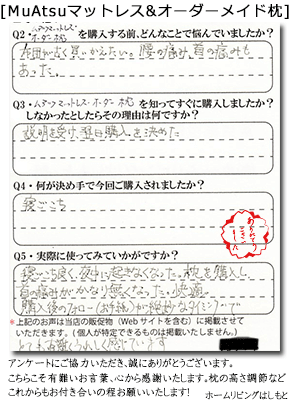 [MuAtsuマットレス&オーダーメイド枕]
Q2・ムアツマットレス・オーダー枕を購入する前、どんなことで悩んでいましたか？
布団が古く買いかえたい。腰の痛み、首の痛みも
あった。
Q3・ムアツマットレス・オーダー枕を知ってすぐに購入しましたか？
しなかったとしたらその理由は何ですか？
説明を受け、翌日購入を決めた
Q4・何が決め手で今回ご購入されましたか？
寝ごこち
Q5・実際に使ってみていかがですか？
寝ごこち良く、夜中に起きなくなった。枕も購入し、
首の痛みがかなり無くなった。快適。
購入後のフォロー(お手紙)が絶妙なタイミングで
※上記のお声は当店の販促物（Webサイトを含む）に掲載させて
いただきます。（個人が特定できるものは掲載いたしません。）
アンケートにご協力いただき、誠にありがとうございます。
こちらこそ有難いお言葉、心から感謝いたします。枕の高さ調節など
これからもお付き合いの程お願いいたします！
ホームリビングはしもと